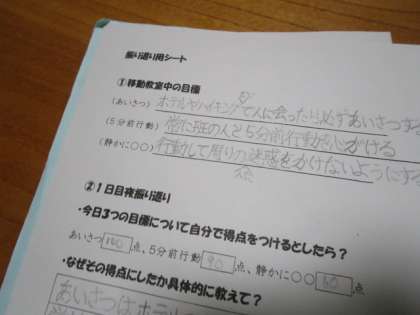 振り返り用シート
①移動教室中の目標
(あいさつ) ホテルやハイキングで人に会ったら必ずあいさつする
(5分前行動) 常に班の人と5分前行動を心がける
(静かに○○) 行動して周りの迷惑をかけないようにする
②1日目夜振り返り
・今日3つの目標について自分で得点をつけるとしたら?
あいさつ 100 点、5分前行動 90 点、静かに○○ 80 点
・なぜその得点にしたか具体的に教えて?
あいさつはホテル